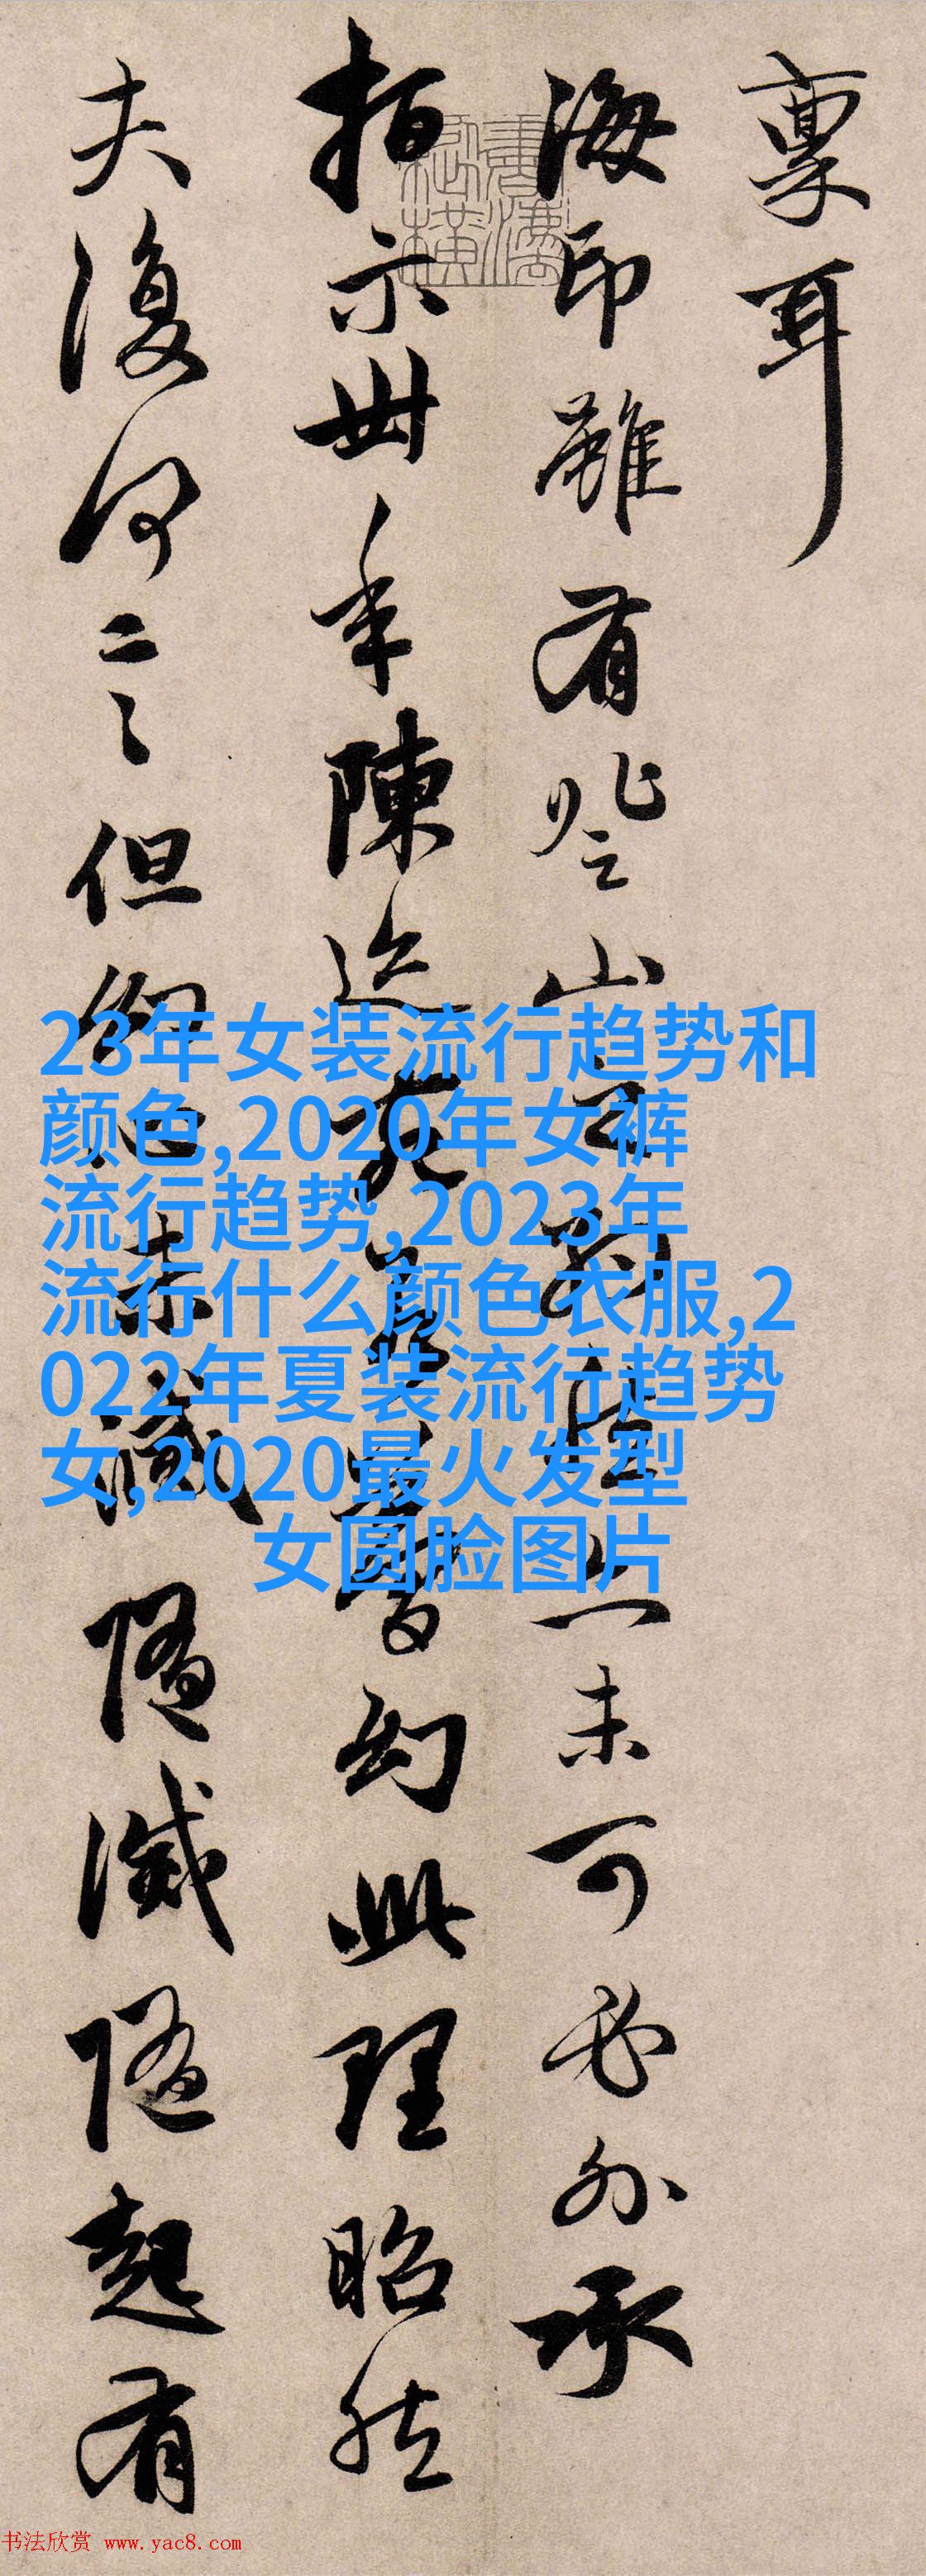 稟耳
海印雖有登山之 未可必外承
指示卅年陳迹 夢幻此理昭然
夫復何言言但 滅隨滅隨起有
23年女装流行趋势和
颜色,2020年女裤
流行趋势,2023年
流行什么颜色衣服,2
022年夏装流行趋势
女,2020最火发型
女圆脸图片
书法欣赏 www.yac8.com